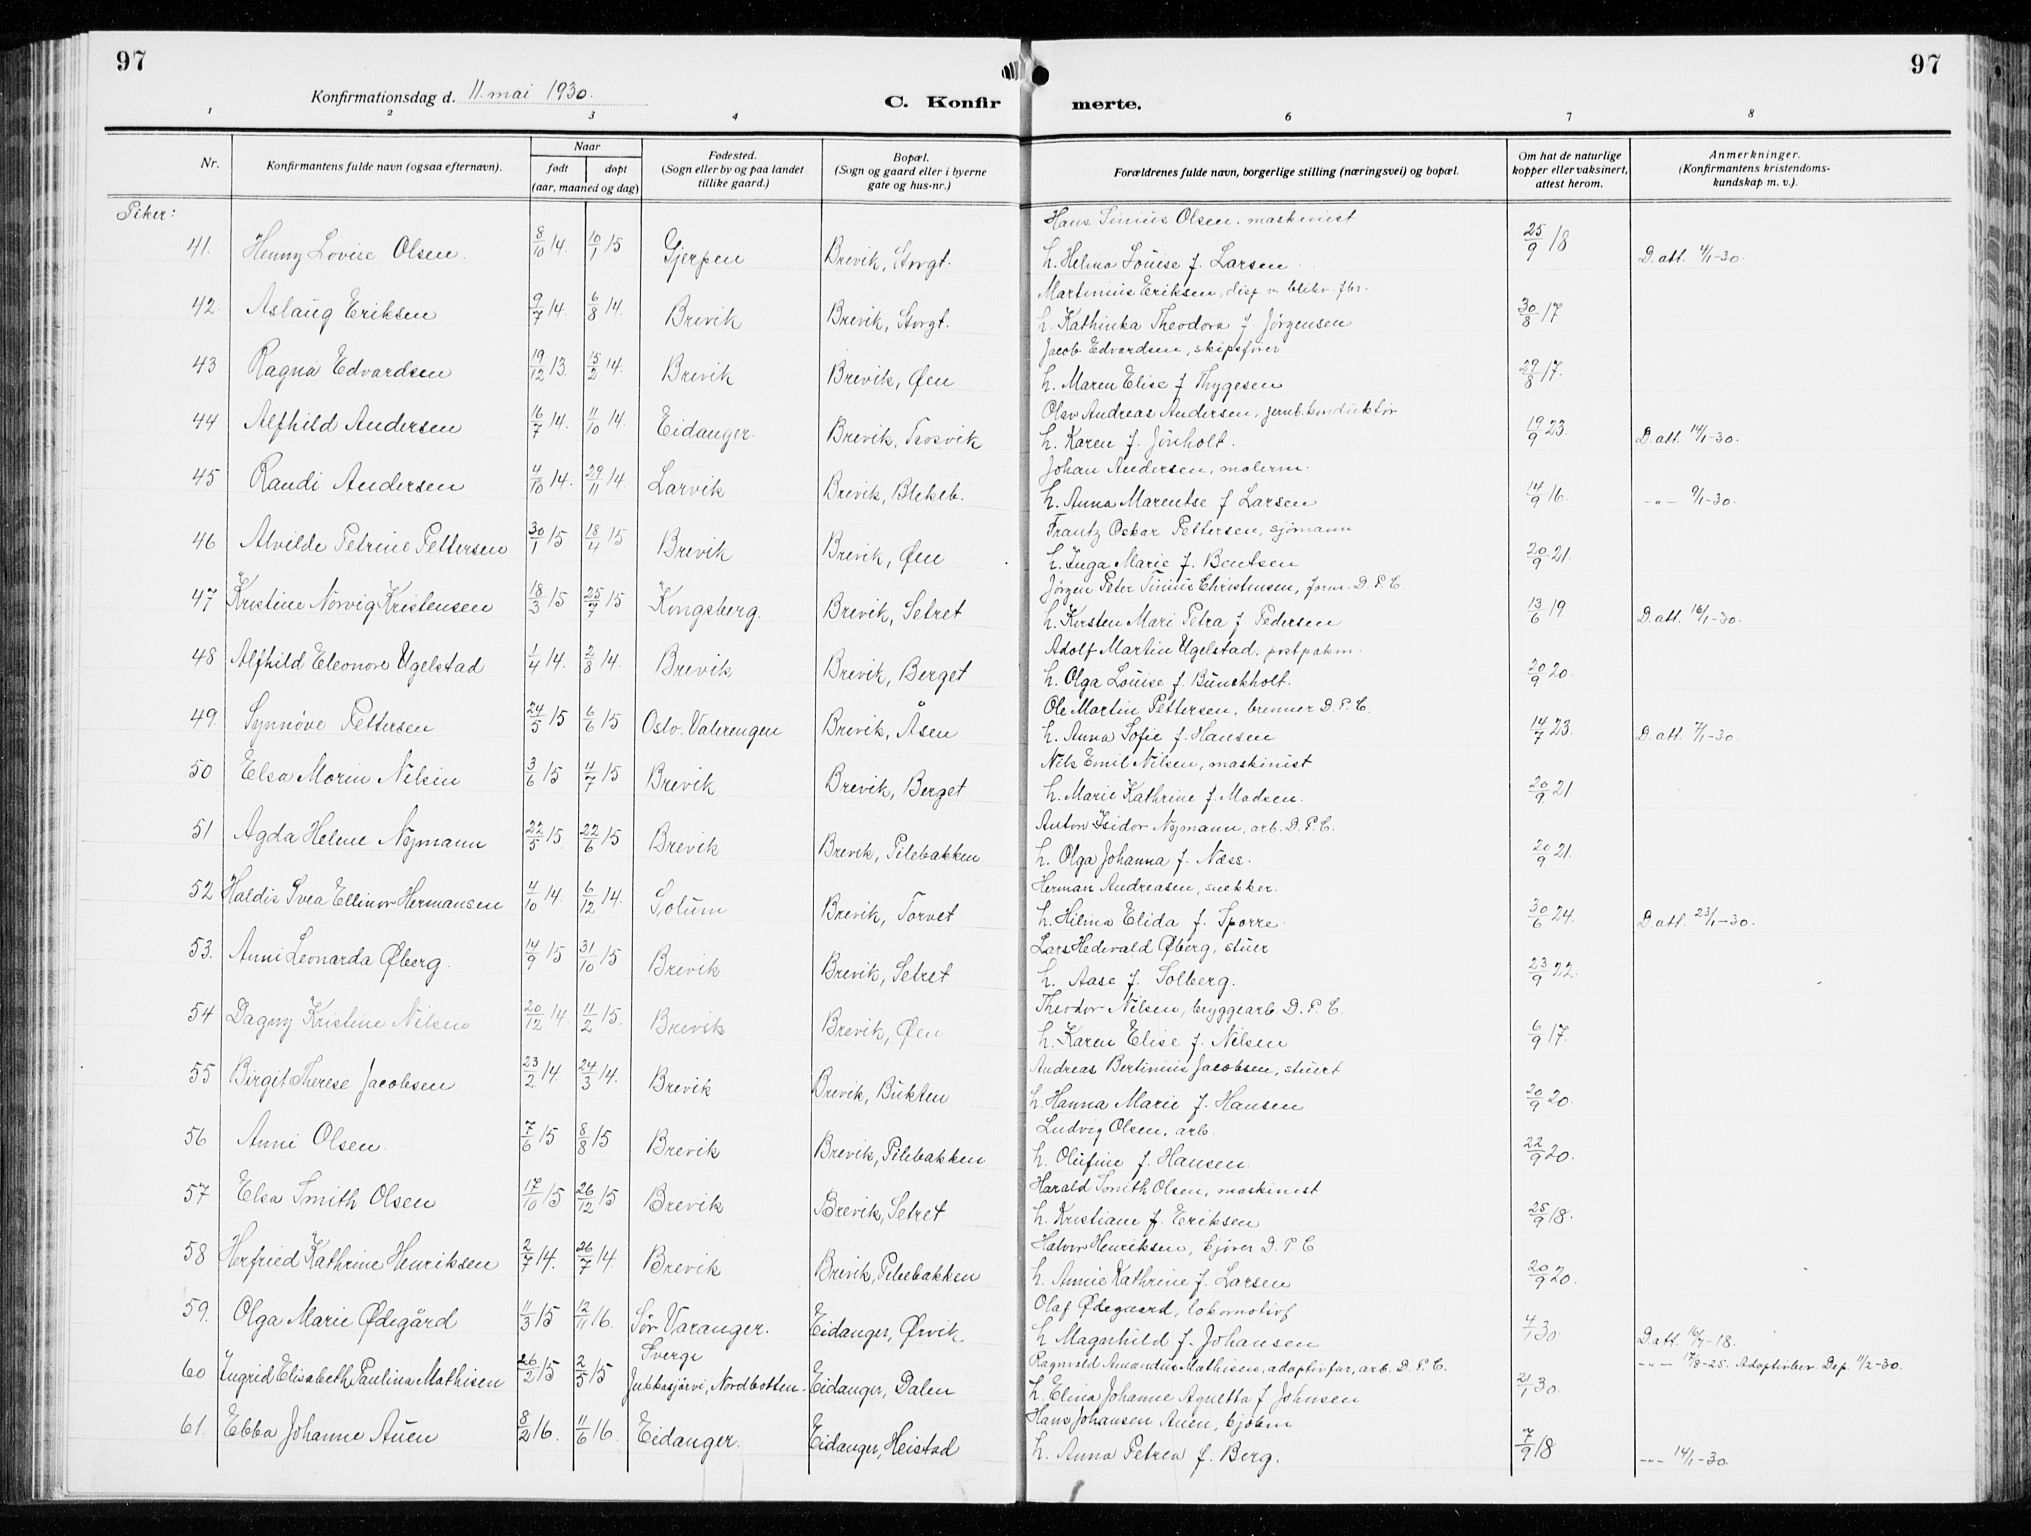 97
97
Konfirmationsdag d. 11. mai 1930.
C. Konfirmerte.
1 2 3 4 5 6 7 8
Nr. | Konfirmantens fulde navn (ogsaa efternavn). | Naar født døpt (aar, maaned og dag) | Fødested. (Sogn eller by og paa landet tillike gaard.) | Bopæl. (Sogn og gaard eller i byerne gate og hus-nr.) | Forældrenes fulde navn, borgerlige stilling (næringsvei) og bopæl. | Om hat de naturlige kopper eller vaksinert, attest herom. | Anmerkninger. (Konfirmantens kristendomskundskap m. v.).
Piker:
Hans Sinius Olsen, maskinist
41. Henny Lovise Olsen. 8/10 14. 10/1 15 Gjerpen Brevik, Storgt. h. Helma Louise f. Larsen 25/9 18 D. att. 4/1-30.
Martinius Eriksen, disp. v.
42. Aslaug Eriksen 9/7 14. 6/8 14. Brevik Brevik, Storgt. h. Kathinka Theodora f. Jørgensen 30/8 17
Jacob Edvardsen, skipsfører
43 Ragna Edvardsen 19/12 13. 15/2 14. Brevik Brevik, Øen h. Maren Elise f Thygesen 29/8 17.
Olav Andreas Andersen, jernb. konduktør
44 Alfhild Andersen 16/7 14. 11/10 14. Eidanger. Brevik, Trosvik h. Karen f. Jønholt. 19/9 23. D. att. 14/1-30.
Johan Andersen, malerm.
45 Randi Andersen 4/10 14. 29/11 14. Larvik Brevik, Blekeb. h. Anna Marentse f Larsen 14/9 16. -"- 9/1-30.
Frantz Oskar Pettersen, sjömann
46 Alvilde Petrine Pettersen 30/1 15 18/4 15 Brevik Brevik, Øen h. Inga Marie f. Bentsen 20/9 21.
Jørgen Peter Tinius Christensen, form. D. P. C.
47 Kristine Nörvig Kristensen 18/3 15 25/7 15 Kongsberg. Brevik, Setret h. Kirsten Mari Petra f Pedersen 13/6 19 D. att. 16/1-30.
Adolf Martin Ugelstad, postpakm.
48 Alfhild Eleonore Ugelstad 1/4 14. 2/8 14. Brevik Brevik, Berget h. Olga Louise f. Bunckholt. 20/9 20.
Ole Martin Pettersen, brenner D. P. C.
49. Synnöve Pettersen 24/5 15 6/6 15 Oslo. Valerengen Brevik, Åsen h. Anna Sofie f. Hansen 14/7 23. D. att. 7/1-30.
Nils Emil Nilsen, maskinist
50 Elsa Morin Nilsen 3/6 15 11/7 15 Brevik Brevik, Berget h. Marie Kathrine f. Madsen. 20/9 21
Anton Isidor Nymann, arb. D. P. C.
51 Agda Helene Nymann 22/5 15. 22/6 15 Brevik Brevik, Pilebakken h. Olga Johanna f. Næss. 20/9 21.
Herman Andreasen, snekker.
52 Haldis Svea Ellinor Hermansen 4/10 14. 6/12 14. Solum Brevik, Torvet h. Hilma Elida f. Sporre. 30/6 24. D. att. 23/1-30.
Lars Hedevald Øberg, stuer
53. Anni Leonarda Øberg. 14/9 15 31/10 15 Brevik Brevik, Setret h. Aase f. Solberg. 23/9 22.
Theodor Nilsen, bryggearb. D. P. C.
54 Dagny Kristine Nilsen 20/12 14. 11/2 15. Brevik Brevik, Øen h. Karen Elise f. Nilsen 6/9 17.
Andreas Bertinius Jacobsen, stuert
55 Birgit Therese Jacobsen 23/2 14. 24/3 14. Brevik Brevik, Bukten h. Hanna Marie f. Hansen 20/9 20.
Ludvig Olsen, arb.
56 Anni Olsen. 7/6 15 8/8 15 Brevik Brevik, Pilebakken h. Olufine f. Hansen. 22/9 20.
Harald Smith Olsen, maskinist
57 Elsa Smith Olsen 17/10 15 26/12 15 Brevik Brevik, Setret h. Kristiane f. Eriksen 25/9 18.
Halvor Henriksen, kjører D. P. C
58 Herfried Kathrine Henriksen 2/7 14. 26/7 14. Brevik Brevik, Pilebakken h. Annie Kathrine f. Larsen 20/9 20.
Olaf Ødegaard, lokomotivf
59. Olga Marie Ødegård 11/3 15 12/11 16. Sør Varanger. Eidanger, Ørvik. h Magnhild f. Johansen 4/1 30. D att. 16/7-18.
Sverge Ragnvald Amandus Mathisen, adoptivfar, arb. D. P. C. -"- 17/8-25. Adoptivbev. Dep. 11/2-30.
60 Ingrid Elisabeth Paulina Mathisen 26/2 15 2/5 15 Jukkasjärvi, Nordbotten. Eidanger, Dalen h. Elina Johanne Agnetta f Johnsen 21/1 30.
Hans Johansen Auen, kjøbm
61. Ebba Johanne Auen 8/2 16. 11/6 16. Eidanger. Eidanger, Heistad h. Anna Petrea f. Berg. 7/9 18 -"- 14/1-30.